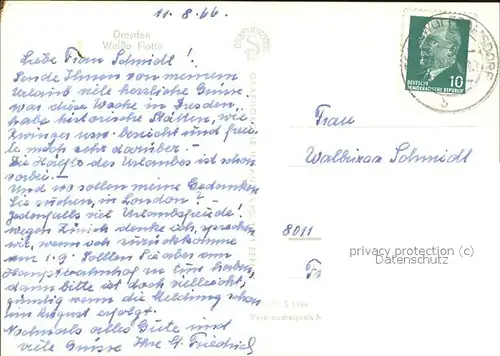 11.8.66
Dresden
Weiße Flotte
Liebe Frau Schmidt!
Sende Ihnen von meinem
Urlaub viele herzliche Grüsse.
War diese Woche in Dresden,
habe historische Stätten, wie
Zwinger usw. besucht und freue
mich sehr darüber. -
Die Hälfte des Urlaubes ist schon
vorbei. -
Und wo sollen meine Gedanken
Sie suchen, in London? -
Jedenfalls viel Urlaubsfreude!
Wegen Zürich denke ich, sprechen
wir, wenn ich zurückkomme
am 1.9. Sollten Sie aber am
Hauptbahnhof zu tun haben,
dann bitte ist doch vielleicht,
günstig wenn die Meldung schon
im August erfolgt.
Nochmals alles Gute und
viele Grüsse Ihre G. Friedrich
DEUTSCHE
DEMOKRATISCHE REPUBLIK
10
b
Frau
Walburga Schmidt
8011
privacy protection (c)
ansichtskarten-center.de
Fr
Verbraucherpreis